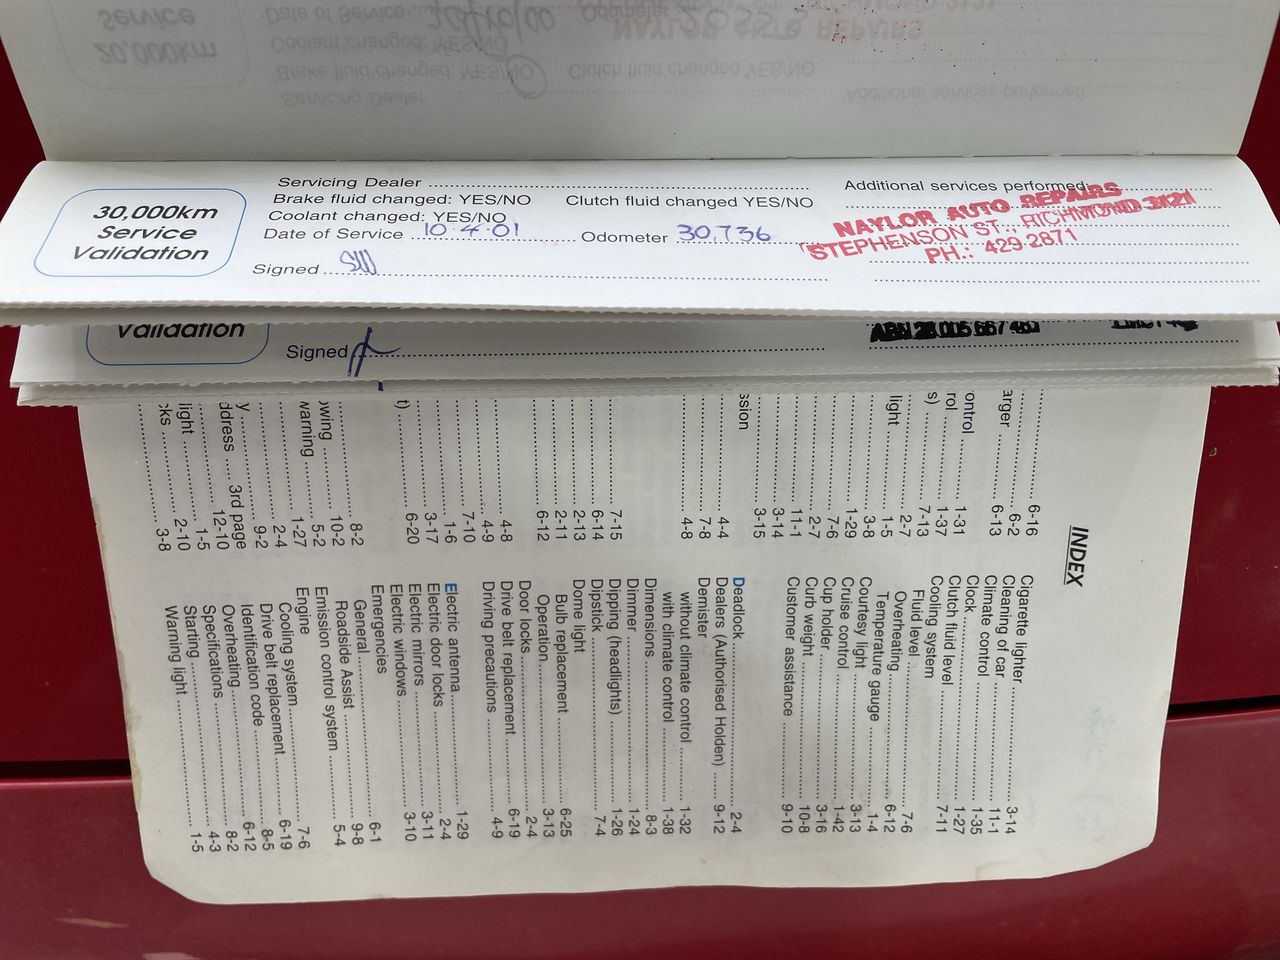 30,000km
Service
Validation
Servicing Dealer
Brake fluid changed: YES/NO Clutch fluid changed YES/NO
Coolant changed: YES/NO
Date of Service 10·4·01 Odometer 30,736
Signed
Additional services performed:
NAYLOR AUTO REPAIRS
STEPHENSON ST., RICHMOND 3121
PH.: 429 2871
Validation
Signed
INDEX
Cigarette lighter 3-14
Cleaning of car 11-1
Climate control 1-35
Clock 1-27
Clutch fluid level 7-11
Cooling system
Fluid level 7-6
Overheating 6-12
Temperature gauge 1-4
Courtesy light 3-13
Cruise control 1-42
Cup holder 3-16
Curb weight 10-8
Customer assistance 9-10
Deadlock 2-4
Dealers (Authorised Holden) 9-12
Demister
without climate control 1-32
with climate control 1-38
Dimensions 8-3
Dimmer 1-24
Dipping (headlights) 1-26
Dipstick 7-4
Dome light
Bulb replacement 6-25
Operation 3-13
Door locks 2-4
Drive belt replacement 6-19
Driving precautions 4-9
Electric antenna 1-29
Electric door locks 2-4
Electric mirrors 3-11
Electric windows 3-10
Emergencies
General 6-1
Roadside Assist 9-8
Emission control system 5-4
Engine
Cooling system 7-6
Drive belt replacement 6-19
Identification code 8-5
Overheating 6-12
Specifications 8-2
Starting 4-3
Warning light 1-5
6-16
arger 6-2
6-13
ontrol 1-31
rol 1-37
s) 7-13
2-7
light 1-5
3-8
1-29
7-6
2-7
11-1
3-14
3-15
ssion
4-4
7-8
4-8
7-15
6-14
2-13
2-11
6-12
4-8
4-9
7-10
1-6
3-17
t) 6-20
8-2
owing 10-2
warning 5-2
1-27
2-4
y 9-2
ddress 3rd page
12-10
1-5
light 2-10
cks 3-8